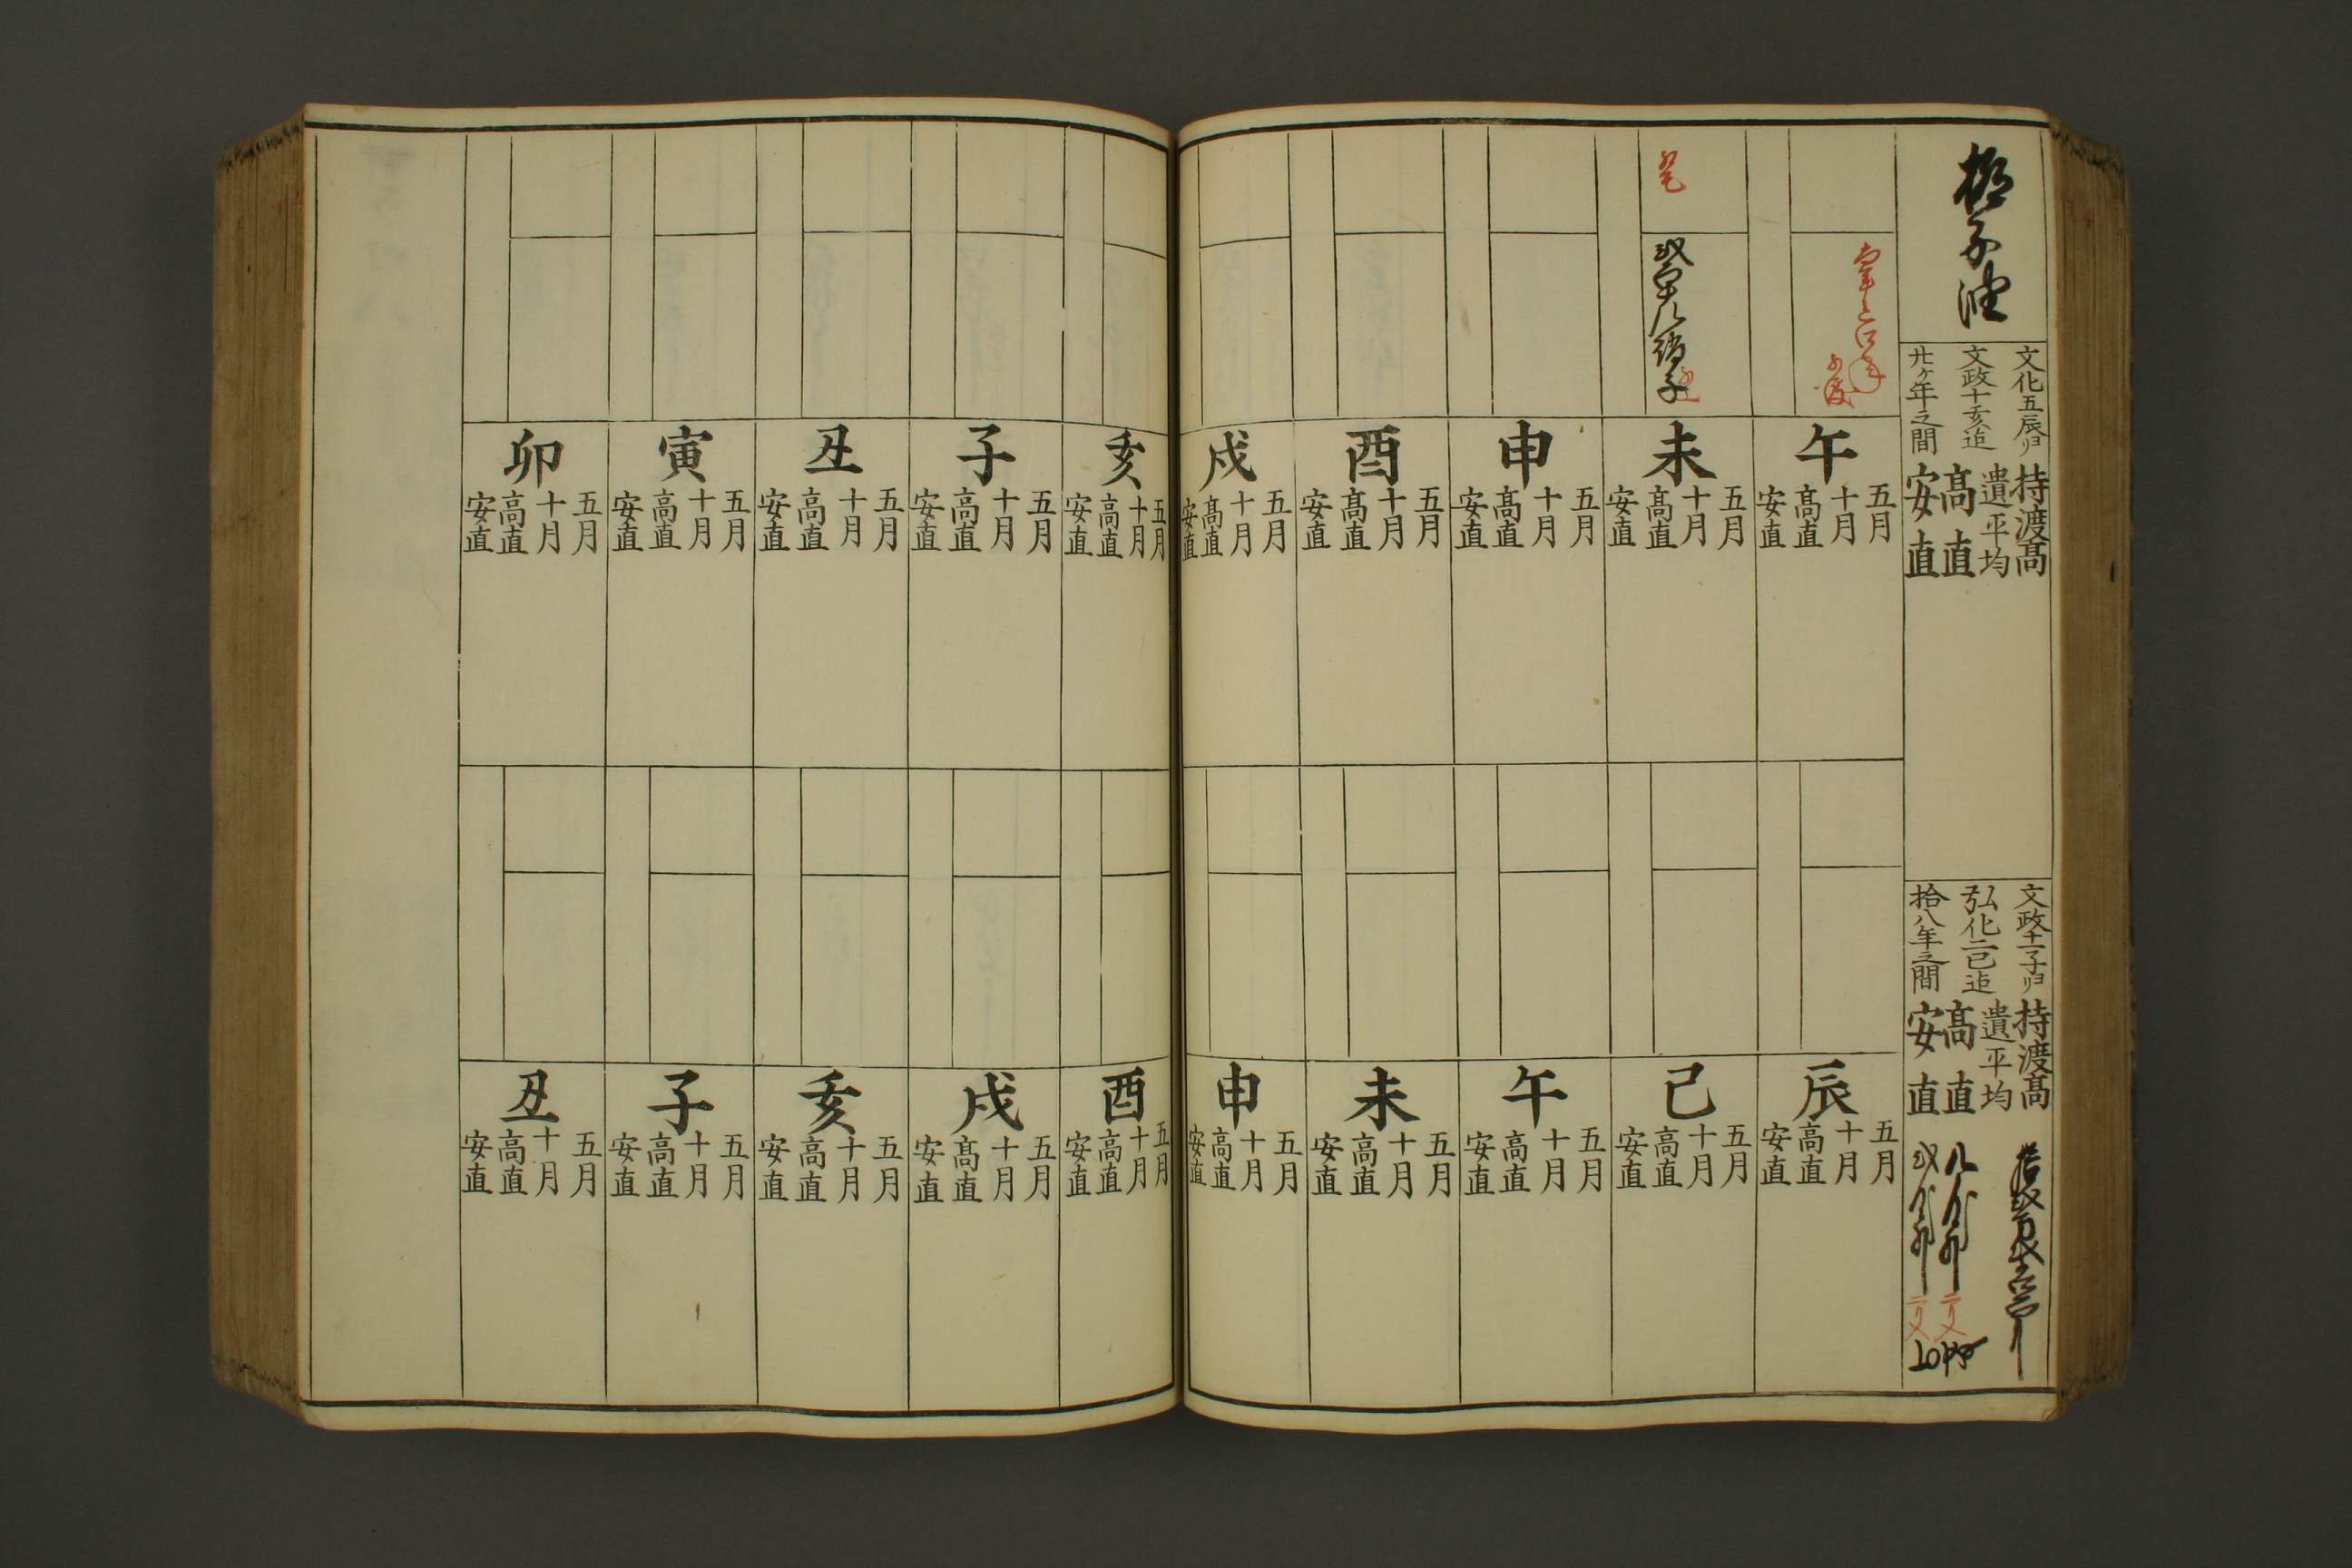 文化五辰ヨリ
文政十亥迠
廿ケ年之間
持渡髙
遺平均
髙直
安直
文政十一子ヨリ
弘化二巳迠
拾八年之間
持渡髙
遺平均
髙直
安直
午
五月
十月
髙直
安直
未
五月
十月
髙直
安直
申
五月
十月
髙直
安直
酉
五月
十月
髙直
安直
戌
五月
十月
髙直
安直
辰
五月
十月
高直
安直
巳
五月
十月
高直
安直
午
五月
十月
高直
安直
未
五月
十月
高直
安直
申
五月
十月
高直
安直
亥
五月
十月
高直
安直
子
五月
十月
高直
安直
丑
五月
十月
高直
安直
寅
五月
十月
高直
安直
卯
五月
十月
高直
安直
酉
五月
十月
高直
安直
戌
五月
十月
髙直
安直
亥
五月
十月
高直
安直
子
五月
十月
高直
安直
丑
五月
十月
高直
安直